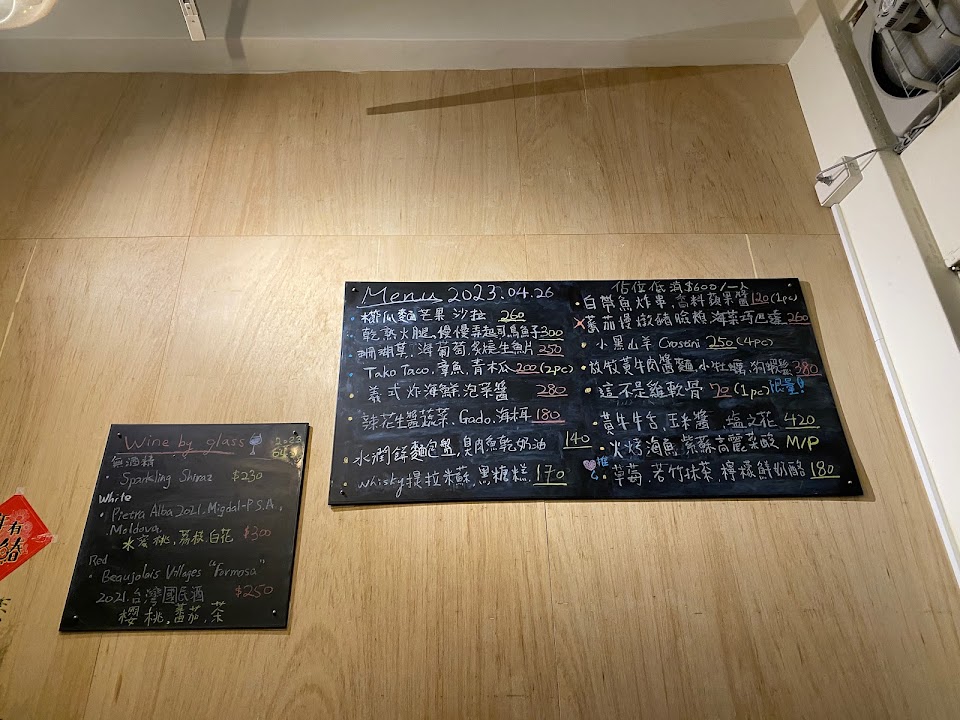 Menu 2023.04.26
櫛瓜麵芒果沙拉 260
乾熟火腿,慢慢弄起司,烏魚子 300
珊瑚草、海葡萄,炙燒生魚片 250
Tako Taco,章魚,青木瓜 200 (2pc)
義式炸海鮮,泡菜醬 280
辣花生醬蔬菜,Gado,海椰 180
水潤餅麵包盤,臭肉魚乾奶油 140
Whisky提拉米蘇,黑糖糕 170
佔位低消$600/一人
白帶魚炸串,香料蘋果醬 120 (1pc)
蕃茄慢燉豬臉頰 海菜巧巴達 260
小黑山羊 Crostini 250 (4pc)
放牧黃牛肉醬麵,小牡蠣,狗蝦鹽 380
這不是雞軟骨 70 (1pc) 限量!
黃牛牛舌,玉米醬,塩之花 420
火烤海魚,紫蘇高麗菜酸 M/P
推
草莓,若竹抹茶,檸檬鮮奶酪 180
Wine by glass
無酒精
Sparkling Shiraz $230
White
Pietra Alba 2021. Migdal-P S.A.,
Moldova
水蜜桃,荔枝,白花 $300
Red
Beaujolais Villages "Formosa"
2021.台灣國民酒 $250
櫻桃,蕃茄,茶